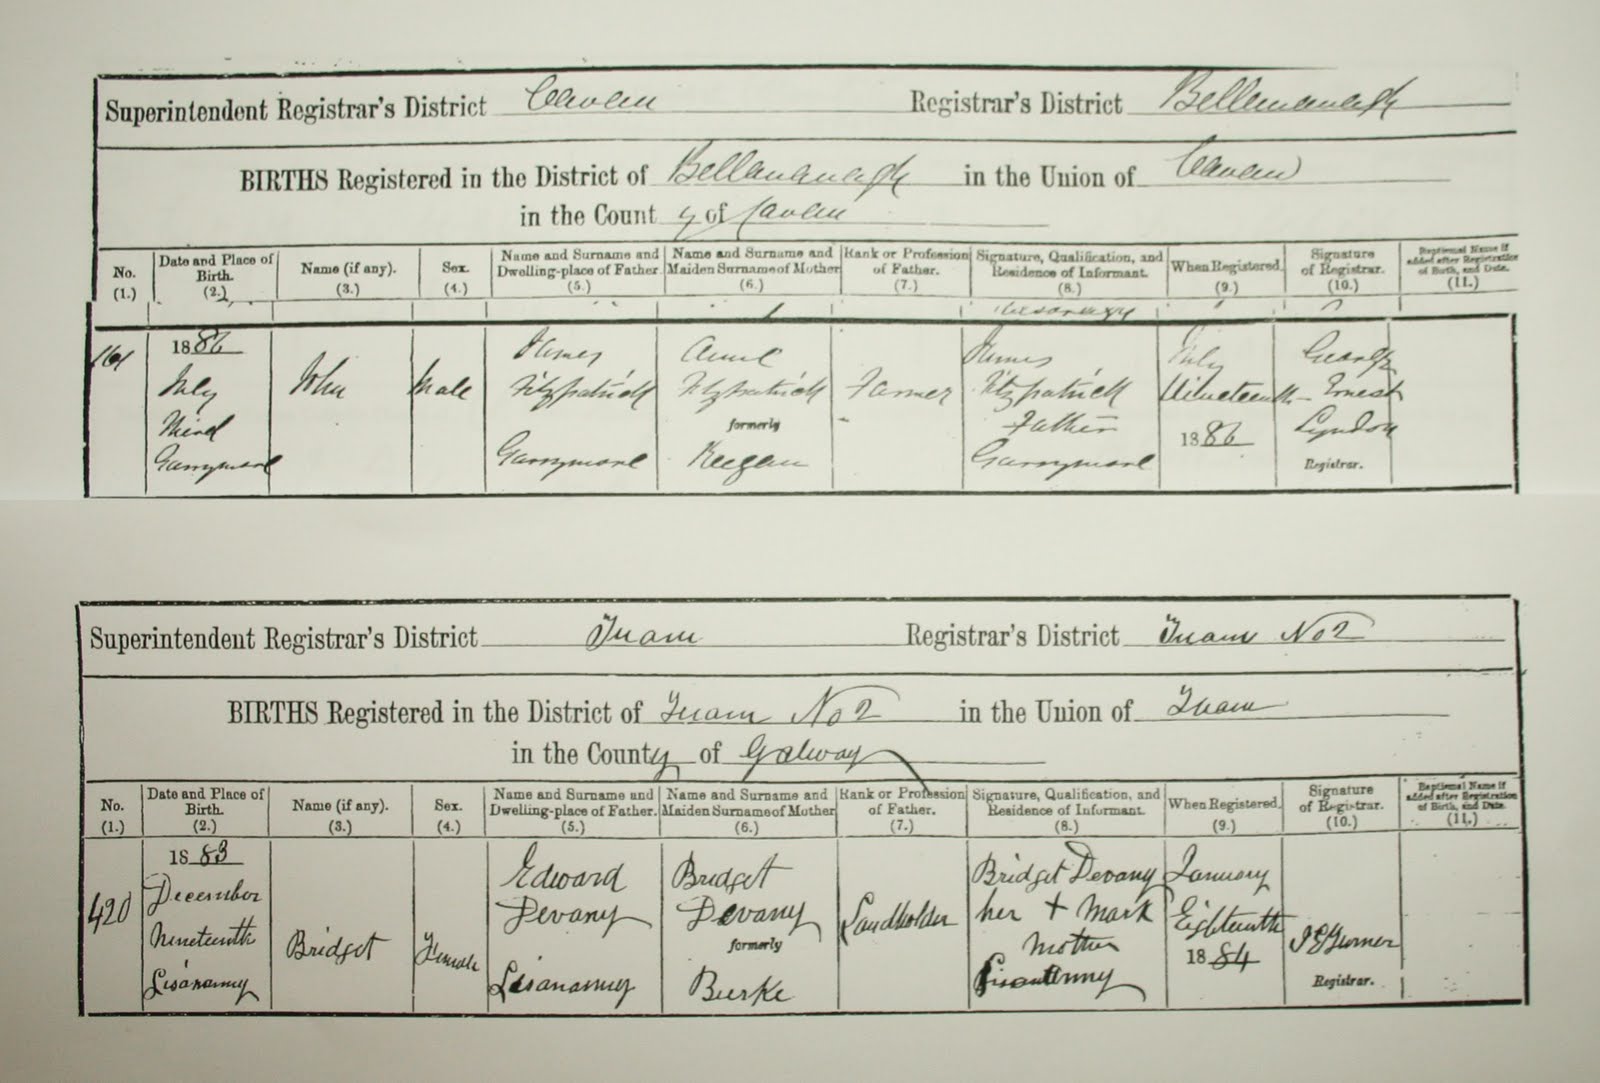 Superintendent Registrar's District Cavan Registrar's District Bellananagh
BIRTHS Registered in the District of Bellananagh in the Union of Cavan
in the County of Cavan
No. (1.) Date and Place of Birth. (2.) Name (if any). (3.) Sex. (4.) Name and Surname and Dwelling-place of Father. (5.) Name and Surname and Maiden Surname of Mother (6.) Rank or Profession of Father. (7.) Signature, Qualification, and Residence of Informant. (8.) When Registered. (9.) Signature of Registrar. (10.) Baptismal Name if added after Registration of Birth, and Date. (11.)
161
1886 July Third Garrymore
John
Male
James Fitzpatrick Garrymore
Anne Fitzpatrick formerly Keegan
Farmer
James Fitzpatrick Father Garrymore
July Nineteenth 1886
George Ernest Lyndon Registrar.
Superintendent Registrar's District Tuam Registrar's District Tuam No 2
BIRTHS Registered in the District of Tuam No 2 in the Union of Tuam
in the County of Galway
No. (1.) Date and Place of Birth. (2.) Name (if any). (3.) Sex. (4.) Name and Surname and Dwelling-place of Father. (5.) Name and Surname and Maiden Surname of Mother (6.) Rank or Profession of Father. (7.) Signature, Qualification, and Residence of Informant. (8.) When Registered. (9.) Signature of Registrar. (10.) Baptismal Name if added after Registration of Birth, and Date. (11.)
420
1883 December Nineteenth Lisananny
Bridget
Female
Edward Devany Lisananny
Bridget Devany formerly Burke
Landholder
Bridget Devany her + mark mother Lisananny
January Eighteenth 1884
Registrar.